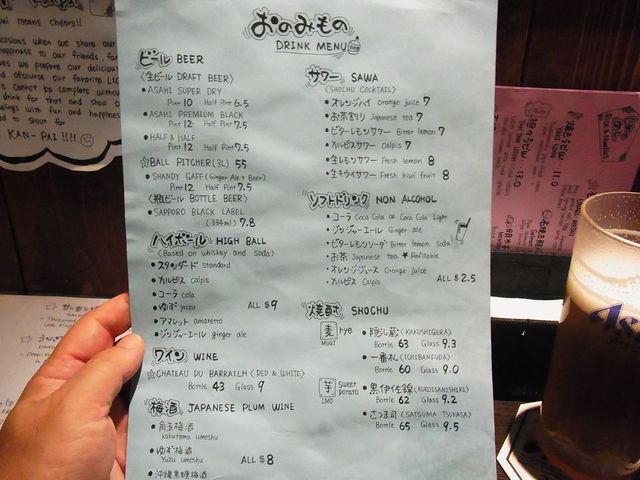 おのみもの
DRINK MENU
ビール BEER
〈生ビール DRAFT BEER〉
• ASAHI SUPER DRY
Pint 10 Half Pint 6.5
• ASAHI PREMIUM BLACK
Pint 12 Half Pint 7.5
• HALF & HALF
Pint 12 Half Pint 7.5
☆BALL PITCHER(3L) 55
• SHANDY GAFF(Ginger Ale + Beer)
Pint 12 Half Pint 7.5
〈瓶ビール BOTTLE BEER〉
• SAPPORO BLACK LABEL
(334ml) 7.8
ハイボール HIGH BALL
(Based on whiskey and Soda)
• スタンダード Standard
• カルピス calpis
• コーラ cola
• ゆず yuzu ALL $9
• アマレット amaretto
• ジンジャーエール ginger ale
ワイン WINE
☆CHATEAU DU BARRAILH (RED & WHITE)
Bottle 43 Glass 9
梅酒 JAPANESE PLUM WINE
• 角玉梅酒
kakutama umeshu
• ゆず梅酒
Yuzu umeshu ALL $8
• 沖縄黒糖梅酒
サワー SAWA
(SHOCHU COCKTAIL)
• オレンジハイ orange juice 7
• お茶割り Japanese tea 7
• ビターレモンサワー Bitter lemon 7
• カルピスサワー Calpis 7
• 生レモンサワー Fresh lemon 8
• 生キウイサワー Fresh kiwi fruit 8
ソフトドリンク NON ALCOHOL
• コーラ Coca Cola or Coca Cola Light
• ジンジャーエール Ginger ale
• ビターレモンソーダ Bitter lemon Soda
• お茶 Japanese tea ★ Refillable
• オレンジジュース Orange juice
• カルピス Calpis ALL $2.5
焼酎 SHOCHU
麦 rye
MUGI
• 隠し蔵 (KAKUSHIGURA)
Bottle 63 Glass 9.3
• 一番札 (ICHIBANFUDA)
Bottle 60 Glass 9.0
芋 Sweet potato
IMO
• 黒伊佐錦 (KUROISANISHIKI)
Bottle 62 Glass 9.2
• さつま司 (SATSUMA TSUKASA)
Bottle 65 Glass 9.5
pai means cheers!!
KAN-PAI!!!!
Rice & Noodles
焼きうどん
YAKI UDON
11.0
13.0